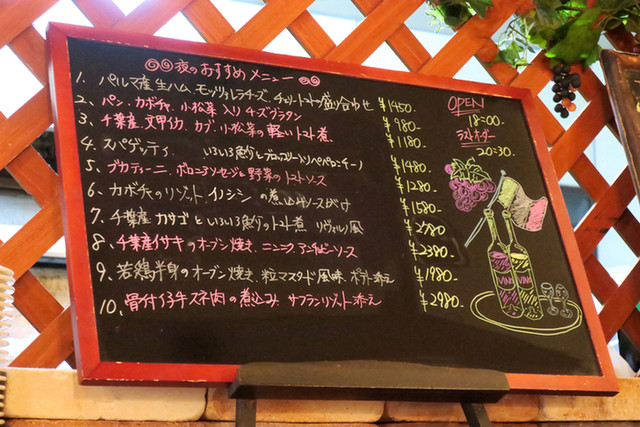 夜のおすすめメニュー
1. パルマ産生ハム、モッツァレラチーズ、チェリートマトの盛り合わせ ¥1450-
2. パン、カボチャ、小松菜入りチーズグラタン ¥980-
3. 千葉産、文甲イカ、カブ、小松菜の軽いトマト煮 ¥1180-
4. スパゲッティ いろいろ魚介とブロッコリー入りペペロンチーノ ¥1480-
5. ブカティーニ、ボロニアソーセージと野菜のトマトソース ¥1280-
6. カボチャのリゾット、イノシシの煮込みソースがけ ¥1580-
7. 千葉産カサゴといろいろ魚介のトマト煮 リヴォルノ風 ¥2780-
8. 千葉産イサキのオーブン焼き、ニンニク、アンチョビーソース ¥2380-
9. 若鶏半身のオーブン焼き、粒マスタード風味、ポテト添え ¥1980-
10. 骨付仔牛スネ肉の煮込み、サフランリゾット添え ¥2980-
OPEN
18:00
ラストオーダー
20:30
VINO
VINO